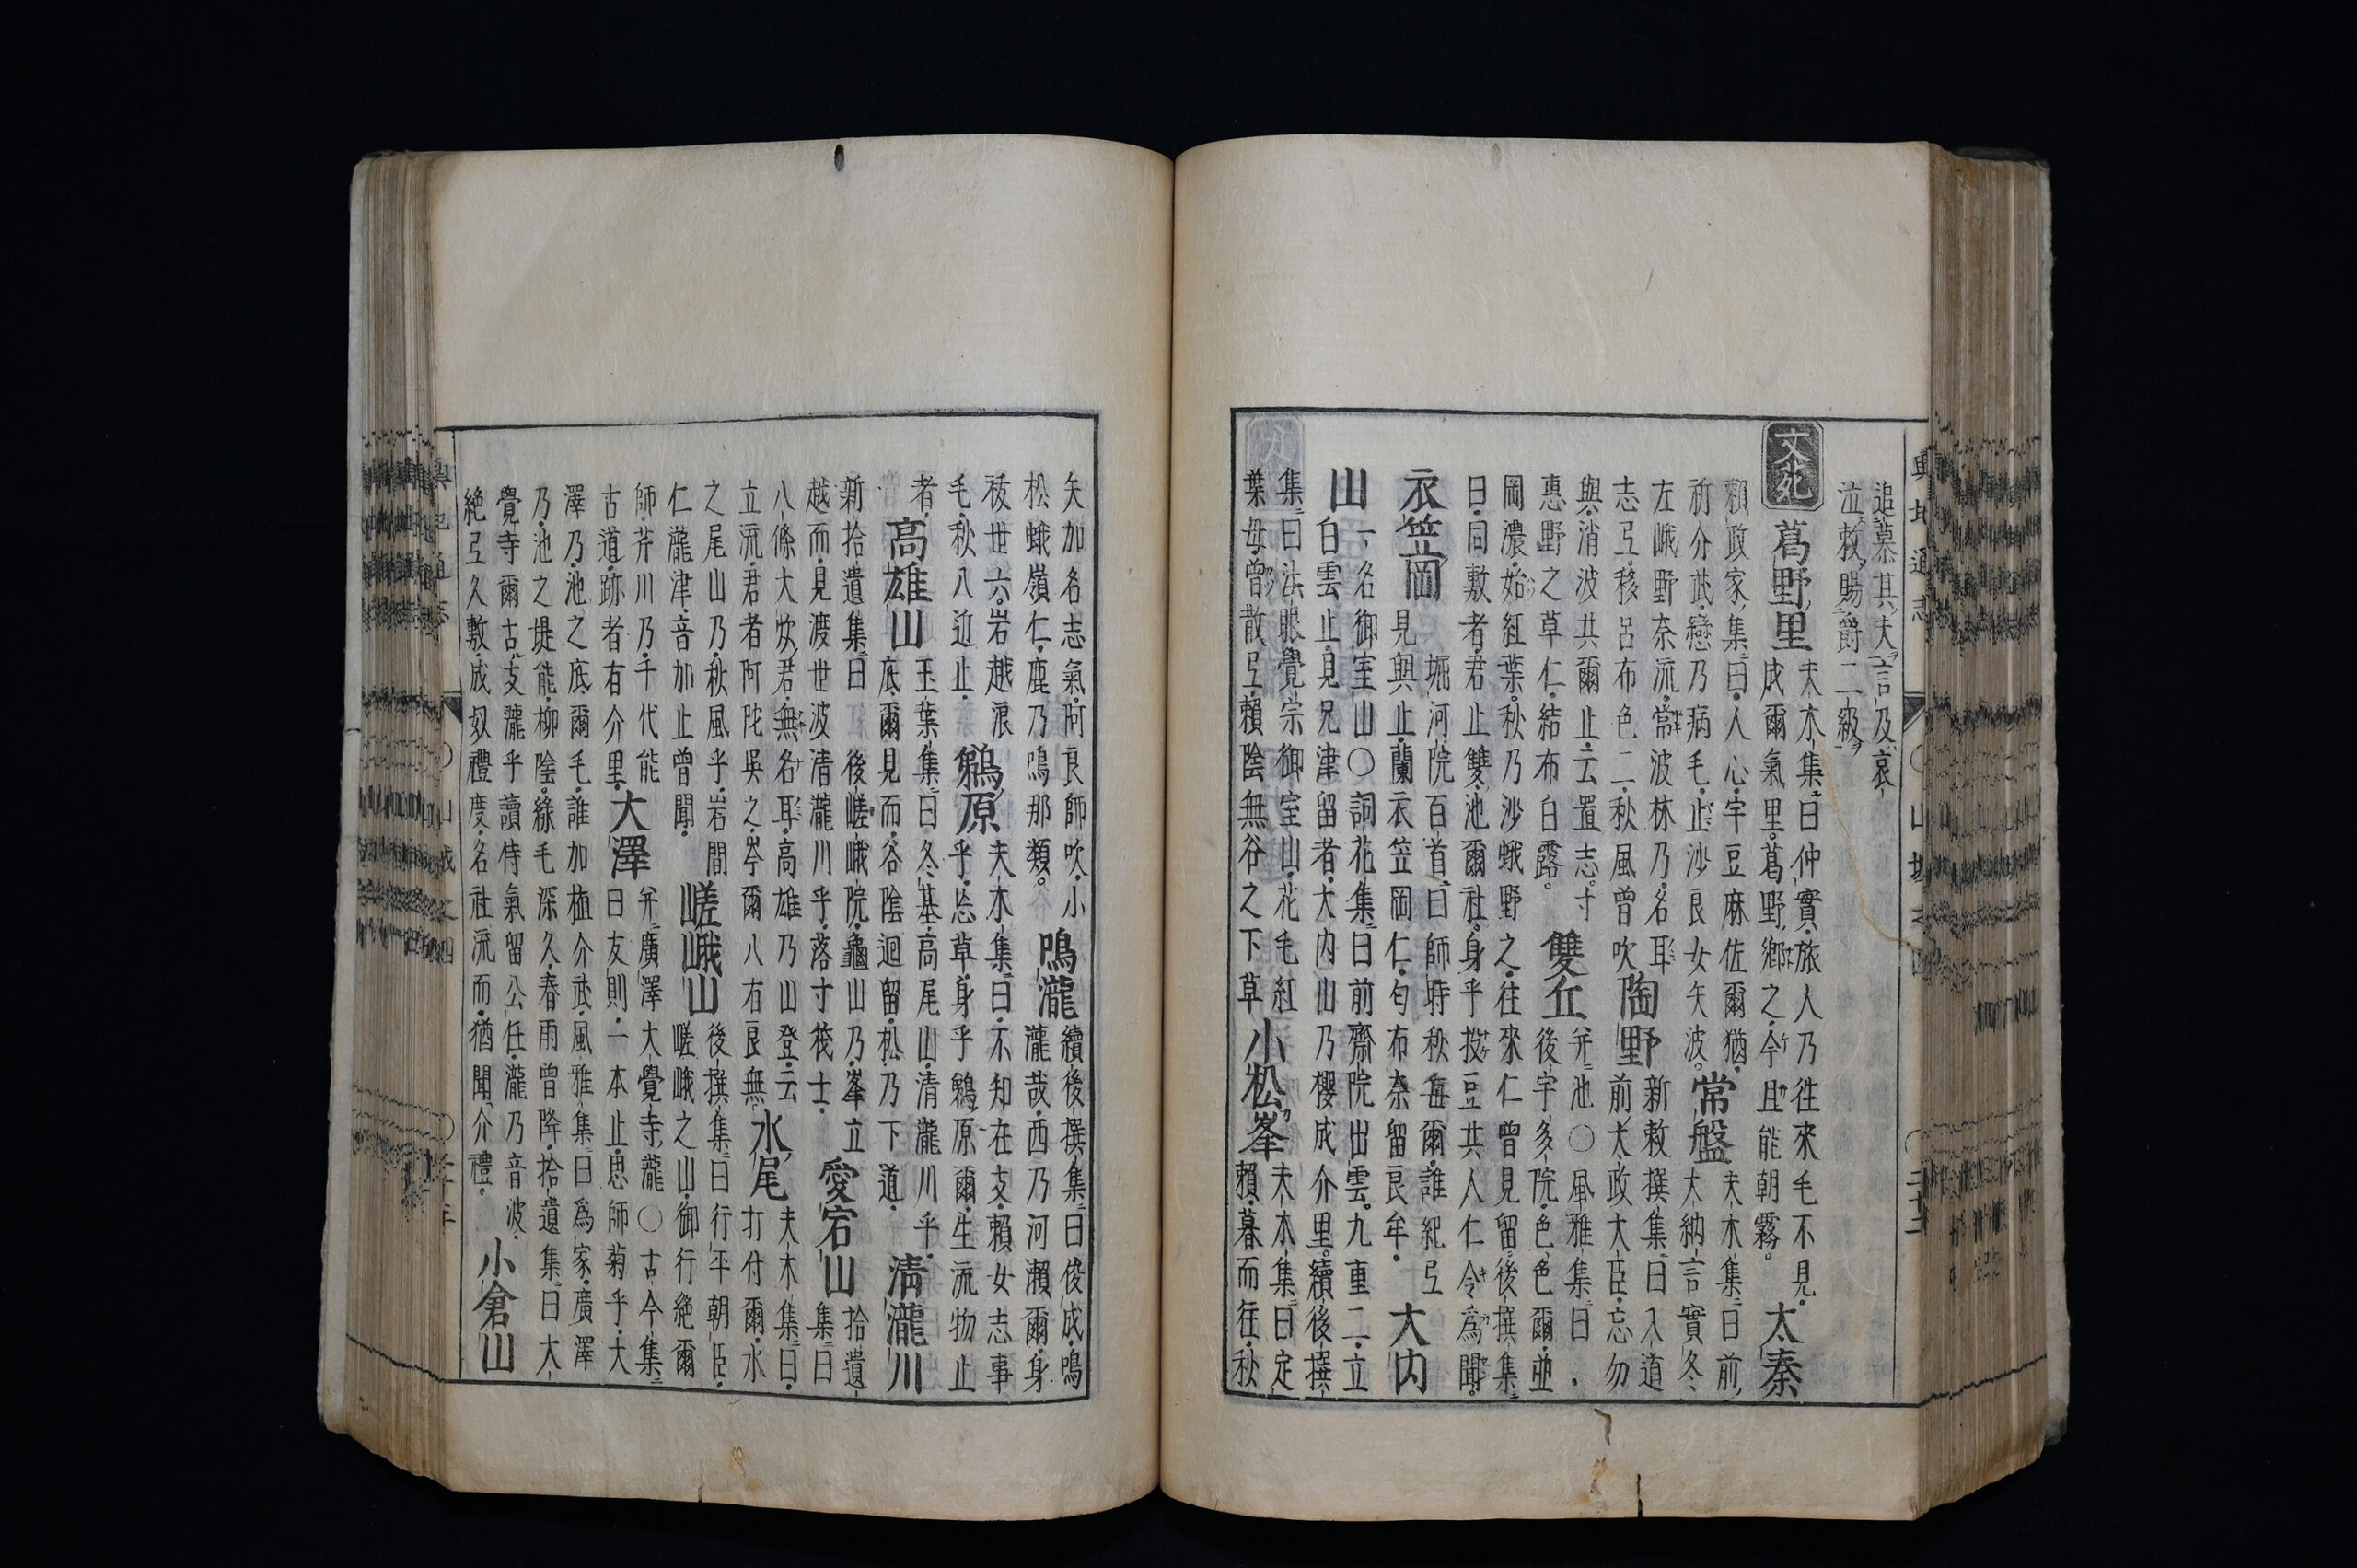 追慕其夫言及哀
泣敕賜爵二級
文苑
葛野里
夫木集曰仲實旅人乃往來毛不見
成爾氣里葛野鄉之今且能朝霧
太秦
賴政家集曰人心宇豆麻佐爾猶
前介武戀乃病毛止沙良女矢波
常盤
夫木集曰前
大納言實冬
左峨野奈流常波林乃名耳
志弖移呂布色二秋風曾吹
陶野
新敕撰集曰入道
前太政大臣忘勿
與消波共爾止云置志寸
惠野之草仁結布白露
雙丘
并池○風雅集曰
後宇多院色色爾並
岡濃始紅葉秋乃沙蛾野之往來仁曾見留後撰集
曰同敷者君止雙池爾社身乎投豆共人仁令爲聞
衣笠岡
堀河院百首曰師時秋每爾誰紀弖
見與止蘭衣笠岡仁匂布奈留良牟
大內
山
一名御室山○詞花集曰前齋院出雲九重二立
白雲止見兄津留者大内山乃櫻成介里續後撰
集曰法眼覺宗御室山花毛紅
葉毋曾散弖賴陰無谷之下草
小松峯
夫木集曰定
賴暮而往秋
矢加名志氣阿良師吹小
松蛾嶺仁鹿乃鳴那類
鳴瀧
續後撰集曰俊成鳴
瀧哉西乃河瀨爾身
祓世六岩越浪
毛秋八近止
鵜原
夫木集曰不知在支賴女志事
乎忘草身乎鵜原爾生流物止
者
高雄山
玉葉集曰冬基高尾山清瀧川乎
底爾見而谷陰迴留松乃下道
清瀧川
新拾遺集曰後嵯峨院龜山乃峯立
越而見渡世波清瀧川乎落寸筏士
愛宕山
拾遺
集曰
八條大妏君無名耳高雄乃山登云
立流君者阿陀吳之岑爾八有良無
水尾
夫木集曰
打付爾水
之尾山乃秋風乎岩間
仁瀧津音加止曾聞
嵯峨山
後撰集曰行平朝臣
嵯峨之山御行絶爾
師芹川乃千代能
古道跡者有介里
大澤
并廣澤大覺寺瀧○古今集
曰友則一本止思師菊乎大
澤乃池之底爾毛誰加植介武風雅集曰爲家廣澤
乃池之堤能柳陰綠毛深久春雨曾降拾遺集曰大
覺寺爾古支瀧乎讀侍氣留公任瀧乃音波
絶弖久敷成奴禮度名社流而猶聞介禮
小倉山